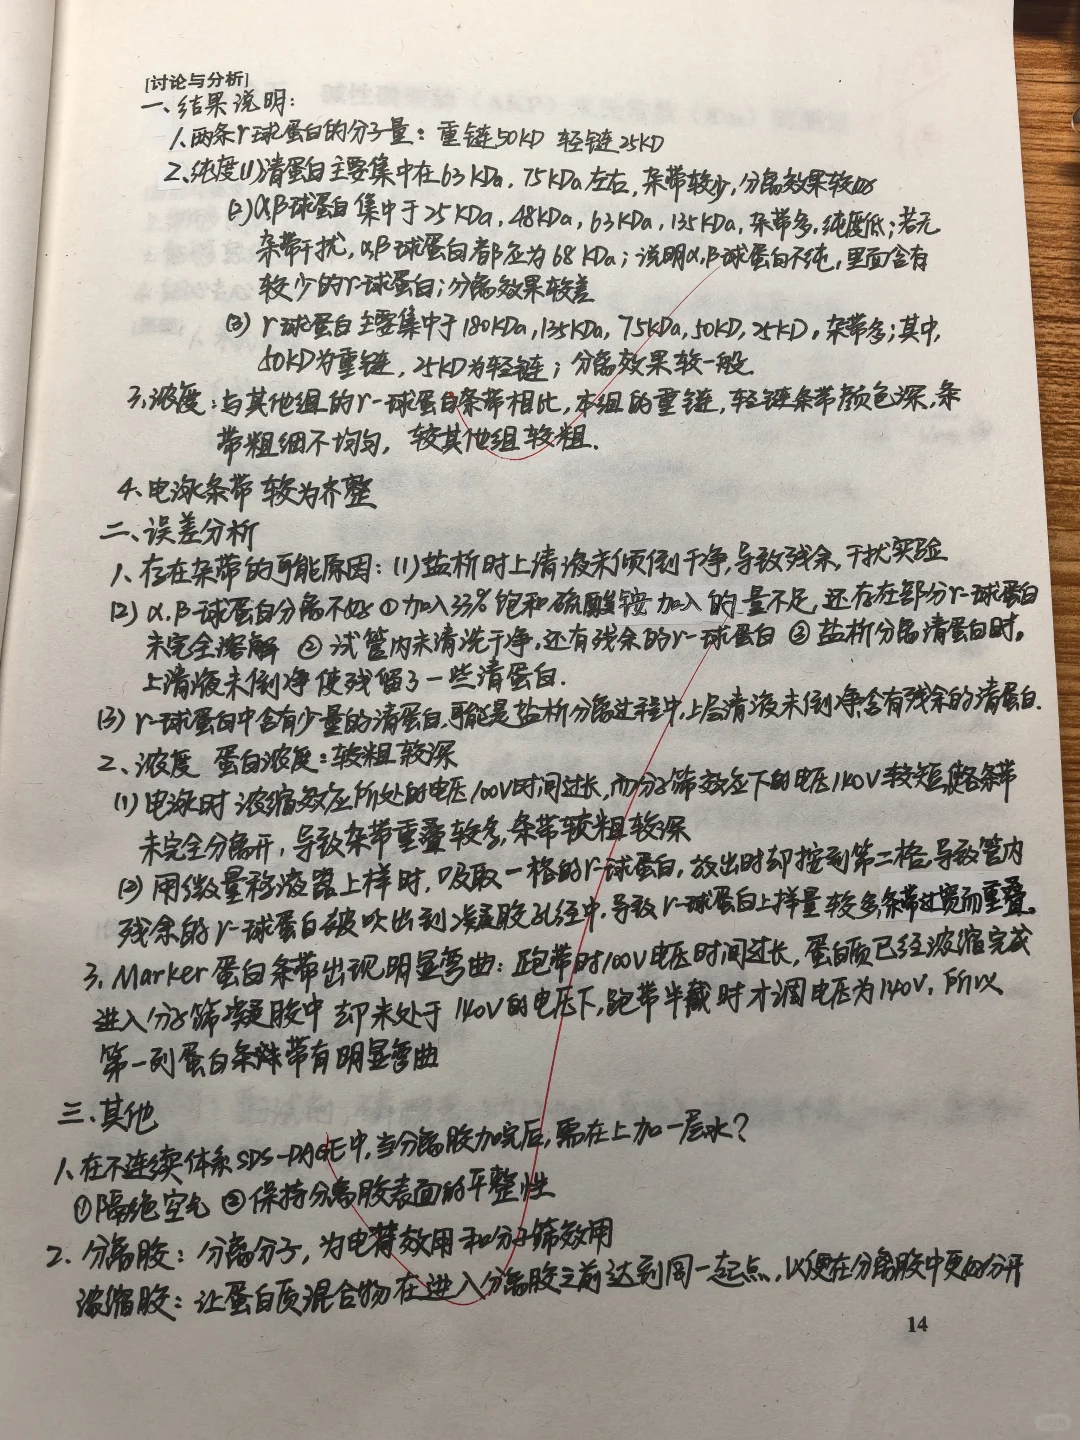 [讨论与分析]
一、结果说明：
1、两条γ球蛋白的分子量：重链50KD 轻链25KD
2、纯度(1)清蛋白主要集中在63KDa，75KDa左右，杂带较少，分离效果较好
(2)αβ球蛋白集中于25KDa，48KDa，63KDa，135KDa，杂带多，纯度低；若无
杂带干扰，αβ球蛋白都应为68KDa；说明α，β球蛋白不纯，里面含有
较少的γ-球蛋白；分离效果较差
(3) γ球蛋白主要集中于180KDa，135KDa，75KDa，50KD，25KD，杂带多；其中，
50KD为重链，25KD为轻链；分离效果较一般.
3、浓度：与其他组的γ-球蛋白条带相比，本组的重链，轻链条带颜色深，条
带粗细不均匀，较其他组较粗.
4、电泳条带较为齐整
二、误差分析
1、存在杂带的可能原因：(1)盐析时上清液未倾倒干净，导致残余，干扰实验
(2) α.β-球蛋白分离不好①加入33%饱和硫酸铵加入的量不足，还存在部分γ-球蛋白
未完全溶解 ②试管内未清洗干净，还有残余的γ-球蛋白 ③盐析分离清蛋白时，
上清液未倒净使残留了一些清蛋白.
(3) γ-球蛋白中含有少量的清蛋白，可能是盐析分离过程中，上层清液未倒净，含有残余的清蛋白.
2、浓度 蛋白浓度：较粗较深
(1) 电泳时浓缩效应所处的电压100V时间过长，而分子筛效应下的电压140V较短，使各条带
未完全分离开，导致杂带重叠较多，条带较粗较深
(2) 用微量移液器上样时，吸取一格的γ-球蛋白，放出时却按到第二格，导致管内
残余的γ-球蛋白被吹出到凝胶孔径中，导致γ-球蛋白上样量较多，条带过宽而重叠。
3、Marker蛋白条带出现明显弯曲：跑带时100V电压时间过长，蛋白质已经浓缩完成
进入分子筛凝胶中却未处于140V的电压下，跑带半截时才调电压为140V，所以
第一列蛋白条带有明显弯曲
三、其他
1、在不连续体系SDS-PAGE中，当分离胶加完后，需在上加一层水？
①隔绝空气 ②保持分离胶表面的平整性
2、分离胶：分离分子，为电荷效用和分子筛效用
浓缩胶：让蛋白质混合物在进入分离胶之前达到同一起点，以便在分离胶中更好分开
14